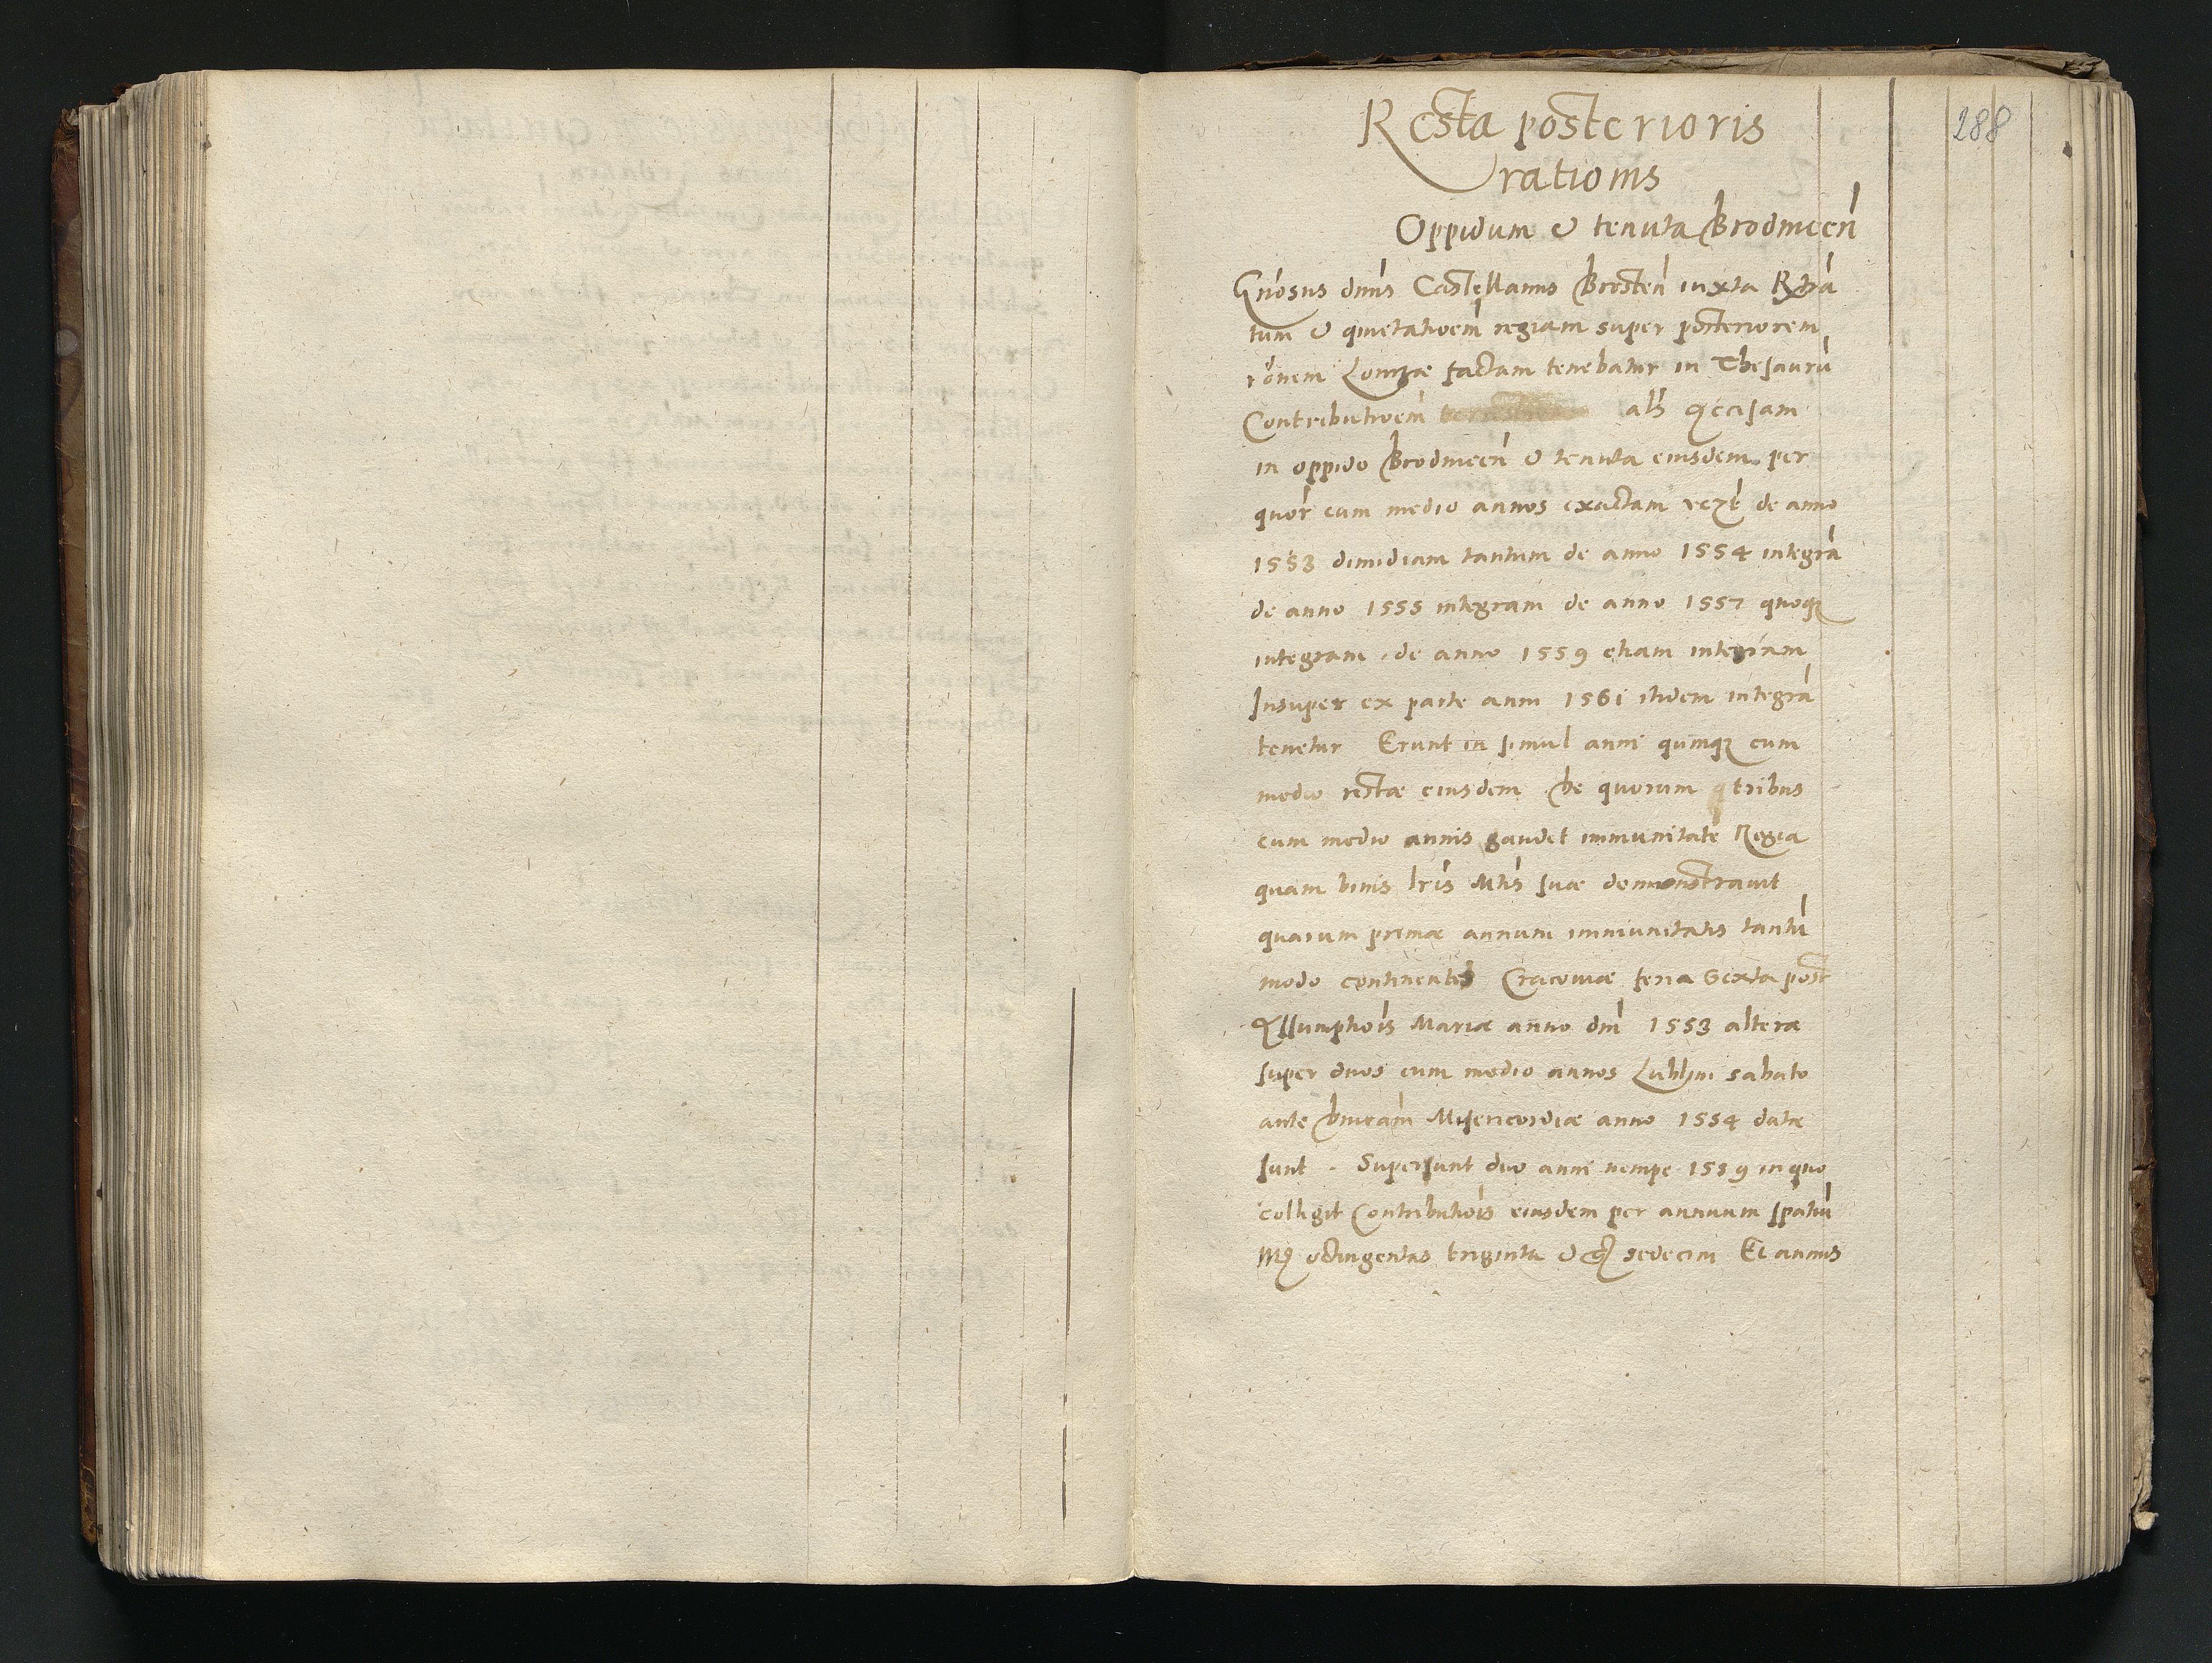 288
Resta posterioris
rationis
Oppidum et tenuta Brodnicen̄
Gn̄osus dn̄us Castellanus Bresten̄ iuxta
tum et quietatioem̄ regiam super posteriorem
rōnem Lomzae factam tenebatur in Thesaurū
Contributioem̄ als
in oppido Brodnicen̄ et tenuta eiusdem per
quor̄ cum medio annos exactam de anno
1553 dimidiam tantum de anno 1554 integrā
de anno 1555 integram de anno 1557 quoq
integram de anno 1559 etiam integram
Insuper ex parte anni 1561 itidem integrā
tenetur Erunt in simul anni quinq cum
medio restae eiusdem de quorum tribus
cum medio annis gaudet immunitate Regia
quam binis lr̄is Mtis̄ suae demonstravit
quarum primae annum immunitatis tantū
modo continentes Cracoviae feria Sexta post
Assumptiois̄ Mariae anno dn̄i 1553 alterae
super duos cum medio annos Lublini sabato
ante Misericordiae anno 1554 datae
sunt. Supersunt duo anni nempe 1559 in quo
collegit Contributiois̄ eiusdem per annuum spatiū
octingentas triginta et sedecim Et annus